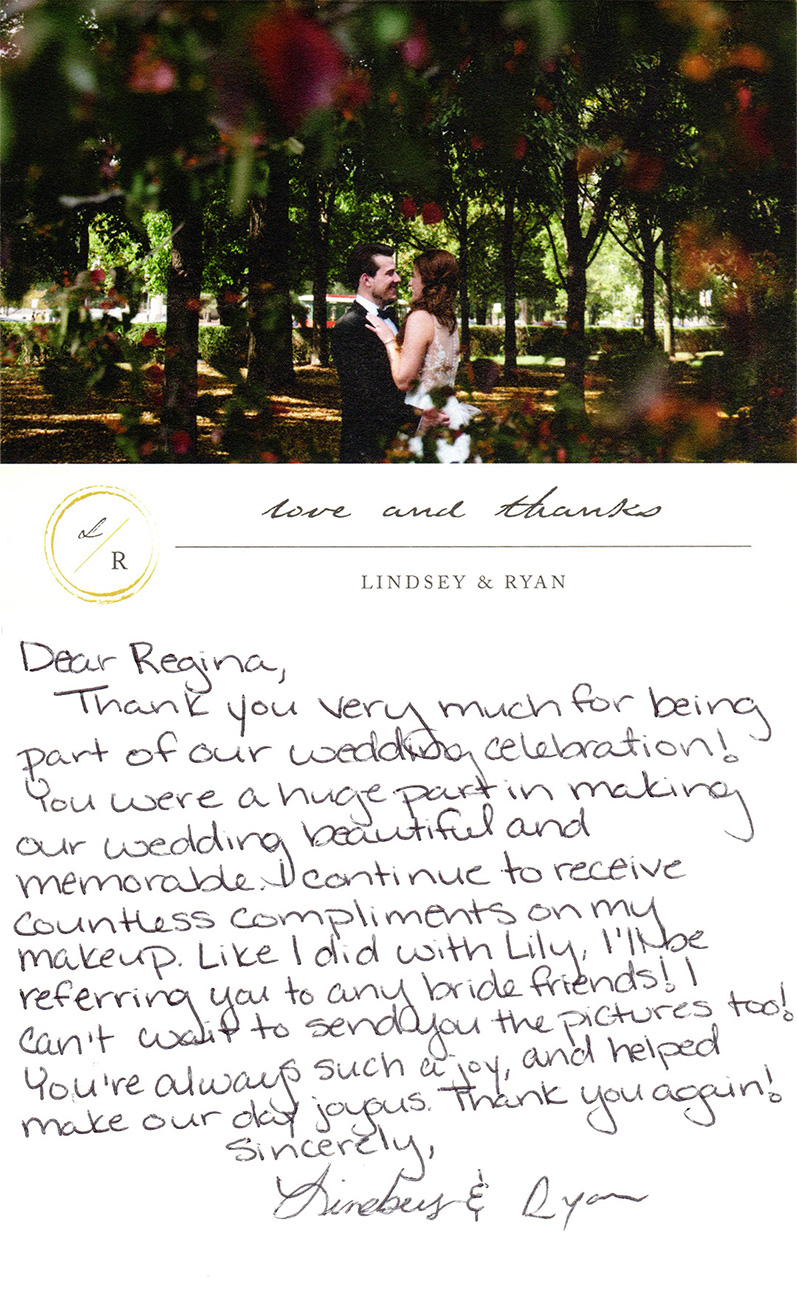 love and thanks
L/R
LINDSEY & RYAN
Dear Regina,
Thank you very much for being
part of our wedding celebration!
You were a huge part in making
our wedding beautiful and
memorable. I continue to receive
countless compliments on my
makeup. Like I did with Lily, I'll be
referring you to any bride friends! I
can't wait to send you the pictures too!
You're always such a joy, and helped
make our day joyous. Thank you again!
Sincerely,
Lindsey & Ryan